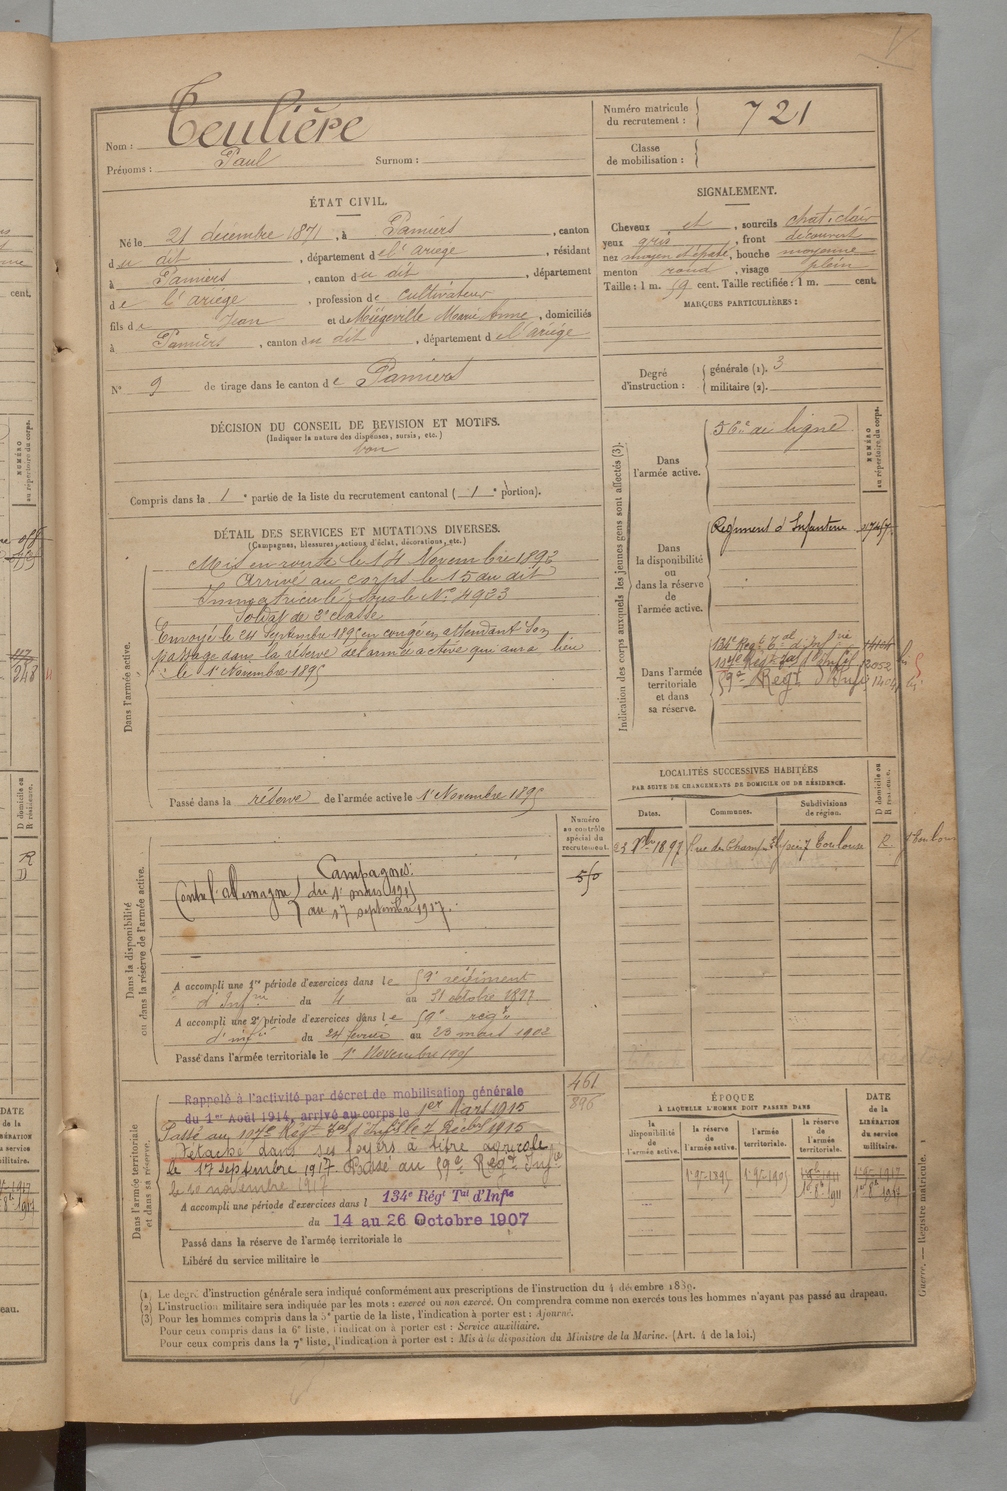 Teulière
Nom :
Prénoms : Paul Surnom :
Numéro matricule du recrutement : 721
Classe de mobilisation :
ÉTAT CIVIL.
Né le 21 décembre 1871, à Pamiers, canton
du dit, département de l'ariège, résidant
à Pamiers, canton du dit, département
de l'ariège, profession de cultivateur
fils de Jean et de Miégeville Marie Anne, domiciliés
à Pamiers, canton du dit, département de l'ariège
N° 9 de tirage dans le canton de Pamiers
SIGNALEMENT.
Cheveux et, sourcils chat. clair
yeux gris, front découvert
nez moyen et épaté, bouche moyenne
menton rond, visage plein
Taille : 1 m. 59 cent. Taille rectifiée : 1 m. cent.
MARQUES PARTICULIÈRES :
Degré d'instruction : générale (1). 3
militaire (2).
DÉCISION DU CONSEIL DE REVISION ET MOTIFS.
(Indiquer la nature des dispenses, sursis, etc.)
bon
Compris dans la 1e partie de la liste du recrutement cantonal (1e portion).
DÉTAIL DES SERVICES ET MUTATIONS DIVERSES.
(Campagnes, blessures, actions d'éclat, décorations, etc.)
Dans l'armée active.
Mis en route le 14 Novembre 1892
Arrivé au corps le 15 au dit
Immatriculé sous le No 4933
Soldat de 2e classe
Envoyé le 24 Septembre 1895 en congé en attendant son
passage dans la réserve de l'armée active qui aura lieu
le 1er Novembre 1895
Passé dans la réserve de l'armée active le 1er Novembre 1895
Indication des corps auxquels les jeunes gens sont affectés (3).
NUMÉRO au répertoire du corps.
Dans l'armée active.
de ligne
Dans la disponibilité ou dans la réserve de l'armée active.
Régiment d'Infanterie
Dans l'armée territoriale et dans sa réserve.
134e Régt Tal d'Infrie
107e Régt Tal d'Infie 2052
59e Régt d'Inf
LOCALITÉS SUCCESSIVES HABITÉES
PAR SUITE DE CHANGEMENTS DE DOMICILE OU DE RÉSIDENCE.
Dates. Communes. Subdivisions de région. D domicile ou R résidence.
23 Xbre 1897 Toulouse R
Numéro au contrôle spécial du recrutement.
Dans la disponibilité ou dans la réserve de l'armée active.
Campagnes:
Contre l'allemagne du 1er mars 1915
au 17 septembre 1917.
A accompli une 1re période d'exercices dans le 59e régiment
d'Infrie du 4 au 31 octobre 1897
A accompli une 2e période d'exercices dans le 59e régt
d'infie du 24 février au 23 mars 1902
Passé dans l'armée territoriale le 1er Novembre 1905
461
896
Dans l'armée territoriale et dans sa réserve.
Rappelé à l'activité par décret de mobilisation générale
du 1er Août 1914, arrivé au corps le 1er Mars 1915
Passé au 107e Régt Tal d'Infie le 7 1915
Détaché dans ses foyers à titre agricole
le 17 septembre 1917. Passé au 59e Régt Infie
le 10 novembre 1917
A accompli une période d'exercices dans l 134e Régt Tal d'Infie
du 14 au 26 Octobre 1907
Passé dans la réserve de l'armée territoriale le
Libéré du service militaire le
ÉPOQUE
À LAQUELLE L'HOMME DOIT PASSER DANS
la disponibilité de l'armée active. la réserve de l'armée active. l'armée territoriale. la réserve de l'armée territoriale.
DATE de la LIBÉRATION du service militaire.
(1) Le degré d'instruction générale sera indiqué conformément aux prescriptions de l'instruction du 4 décembre 1889.
(2) L'instruction militaire sera indiquée par les mots : exercé ou non exercé. On comprendra comme non exercés tous les hommes n'ayant pas passé au drapeau.
(3) Pour les hommes compris dans la 5e partie de la liste, l'indication à porter est : Ajourné.
Pour ceux compris dans la 6e liste, l'indication à porter est : Service auxiliaire.
Pour ceux compris dans la 7e liste, l'indication à porter est : Mis à la disposition du Ministre de la Marine. (Art. 4 de la loi.)
Guerre. — Registre matricule.